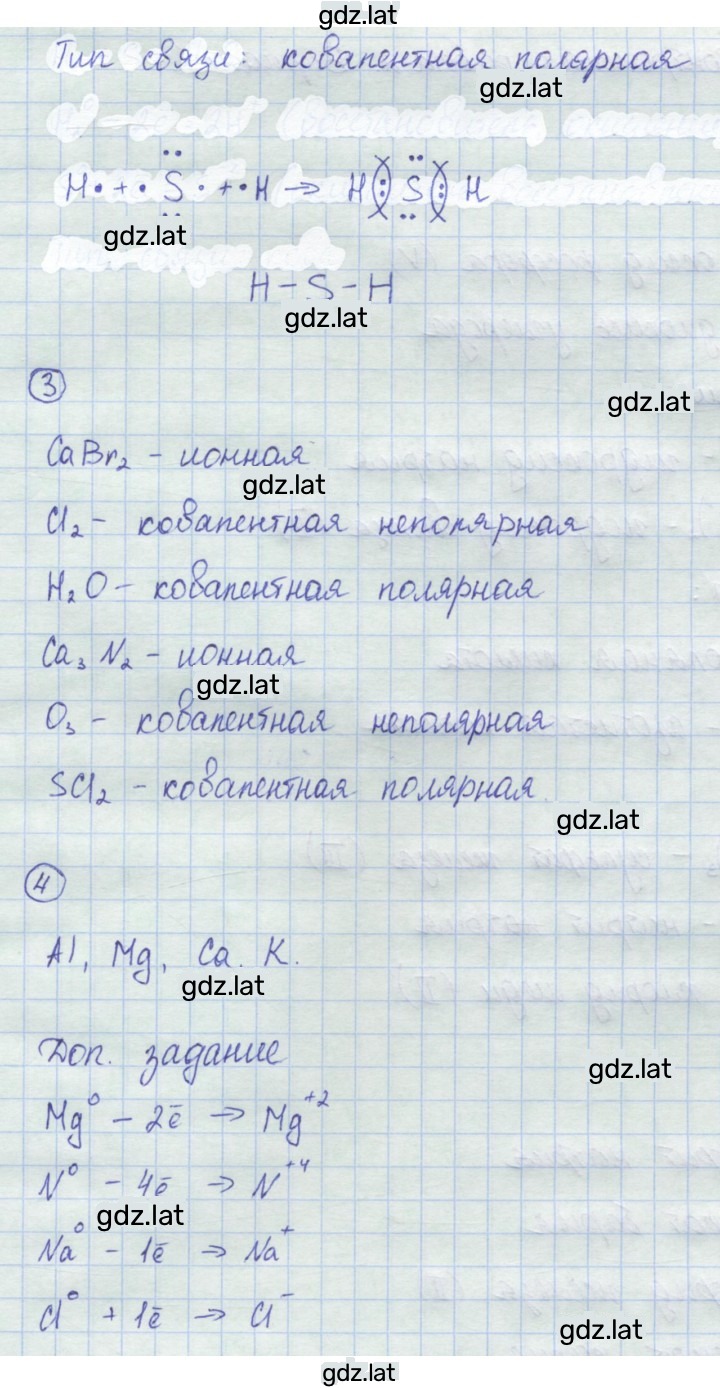 gdz.lat
Тип связи: ковалентная полярная
gdz.lat
H• + •S• + •H → H : S : H
gdz.lat
H – S – H
gdz.lat
3
gdz.lat
CaBr₂ – ионная
gdz.lat
Cl₂ – ковалентная неполярная
H₂O – ковалентная полярная
Ca₃N₂ – ионная
gdz.lat
O₃ – ковалентная неполярная
SCl₂ – ковалентная полярная
gdz.lat
4
Al, Mg, Ca. K.
gdz.lat
Доп. задание
gdz.lat
Mg⁰ – 2ē → Mg⁺²
N⁰ – 4ē → N⁺⁴
gdz.lat
Na⁰ – 1ē → Na⁺
Cl⁰ + 1ē → Cl⁻
gdz.lat
gdz.lat